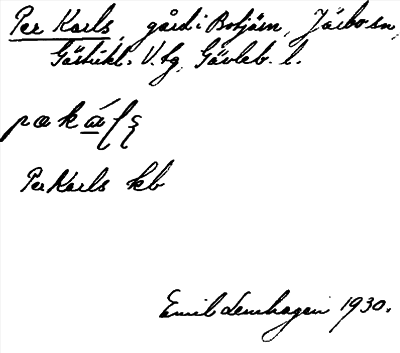 Per Karls, gård i Botjärn, Järbo sn,
Gästrikl. V. tg, Gävleb. l.
Per Karls kb
Emil Lenhagen 1930.